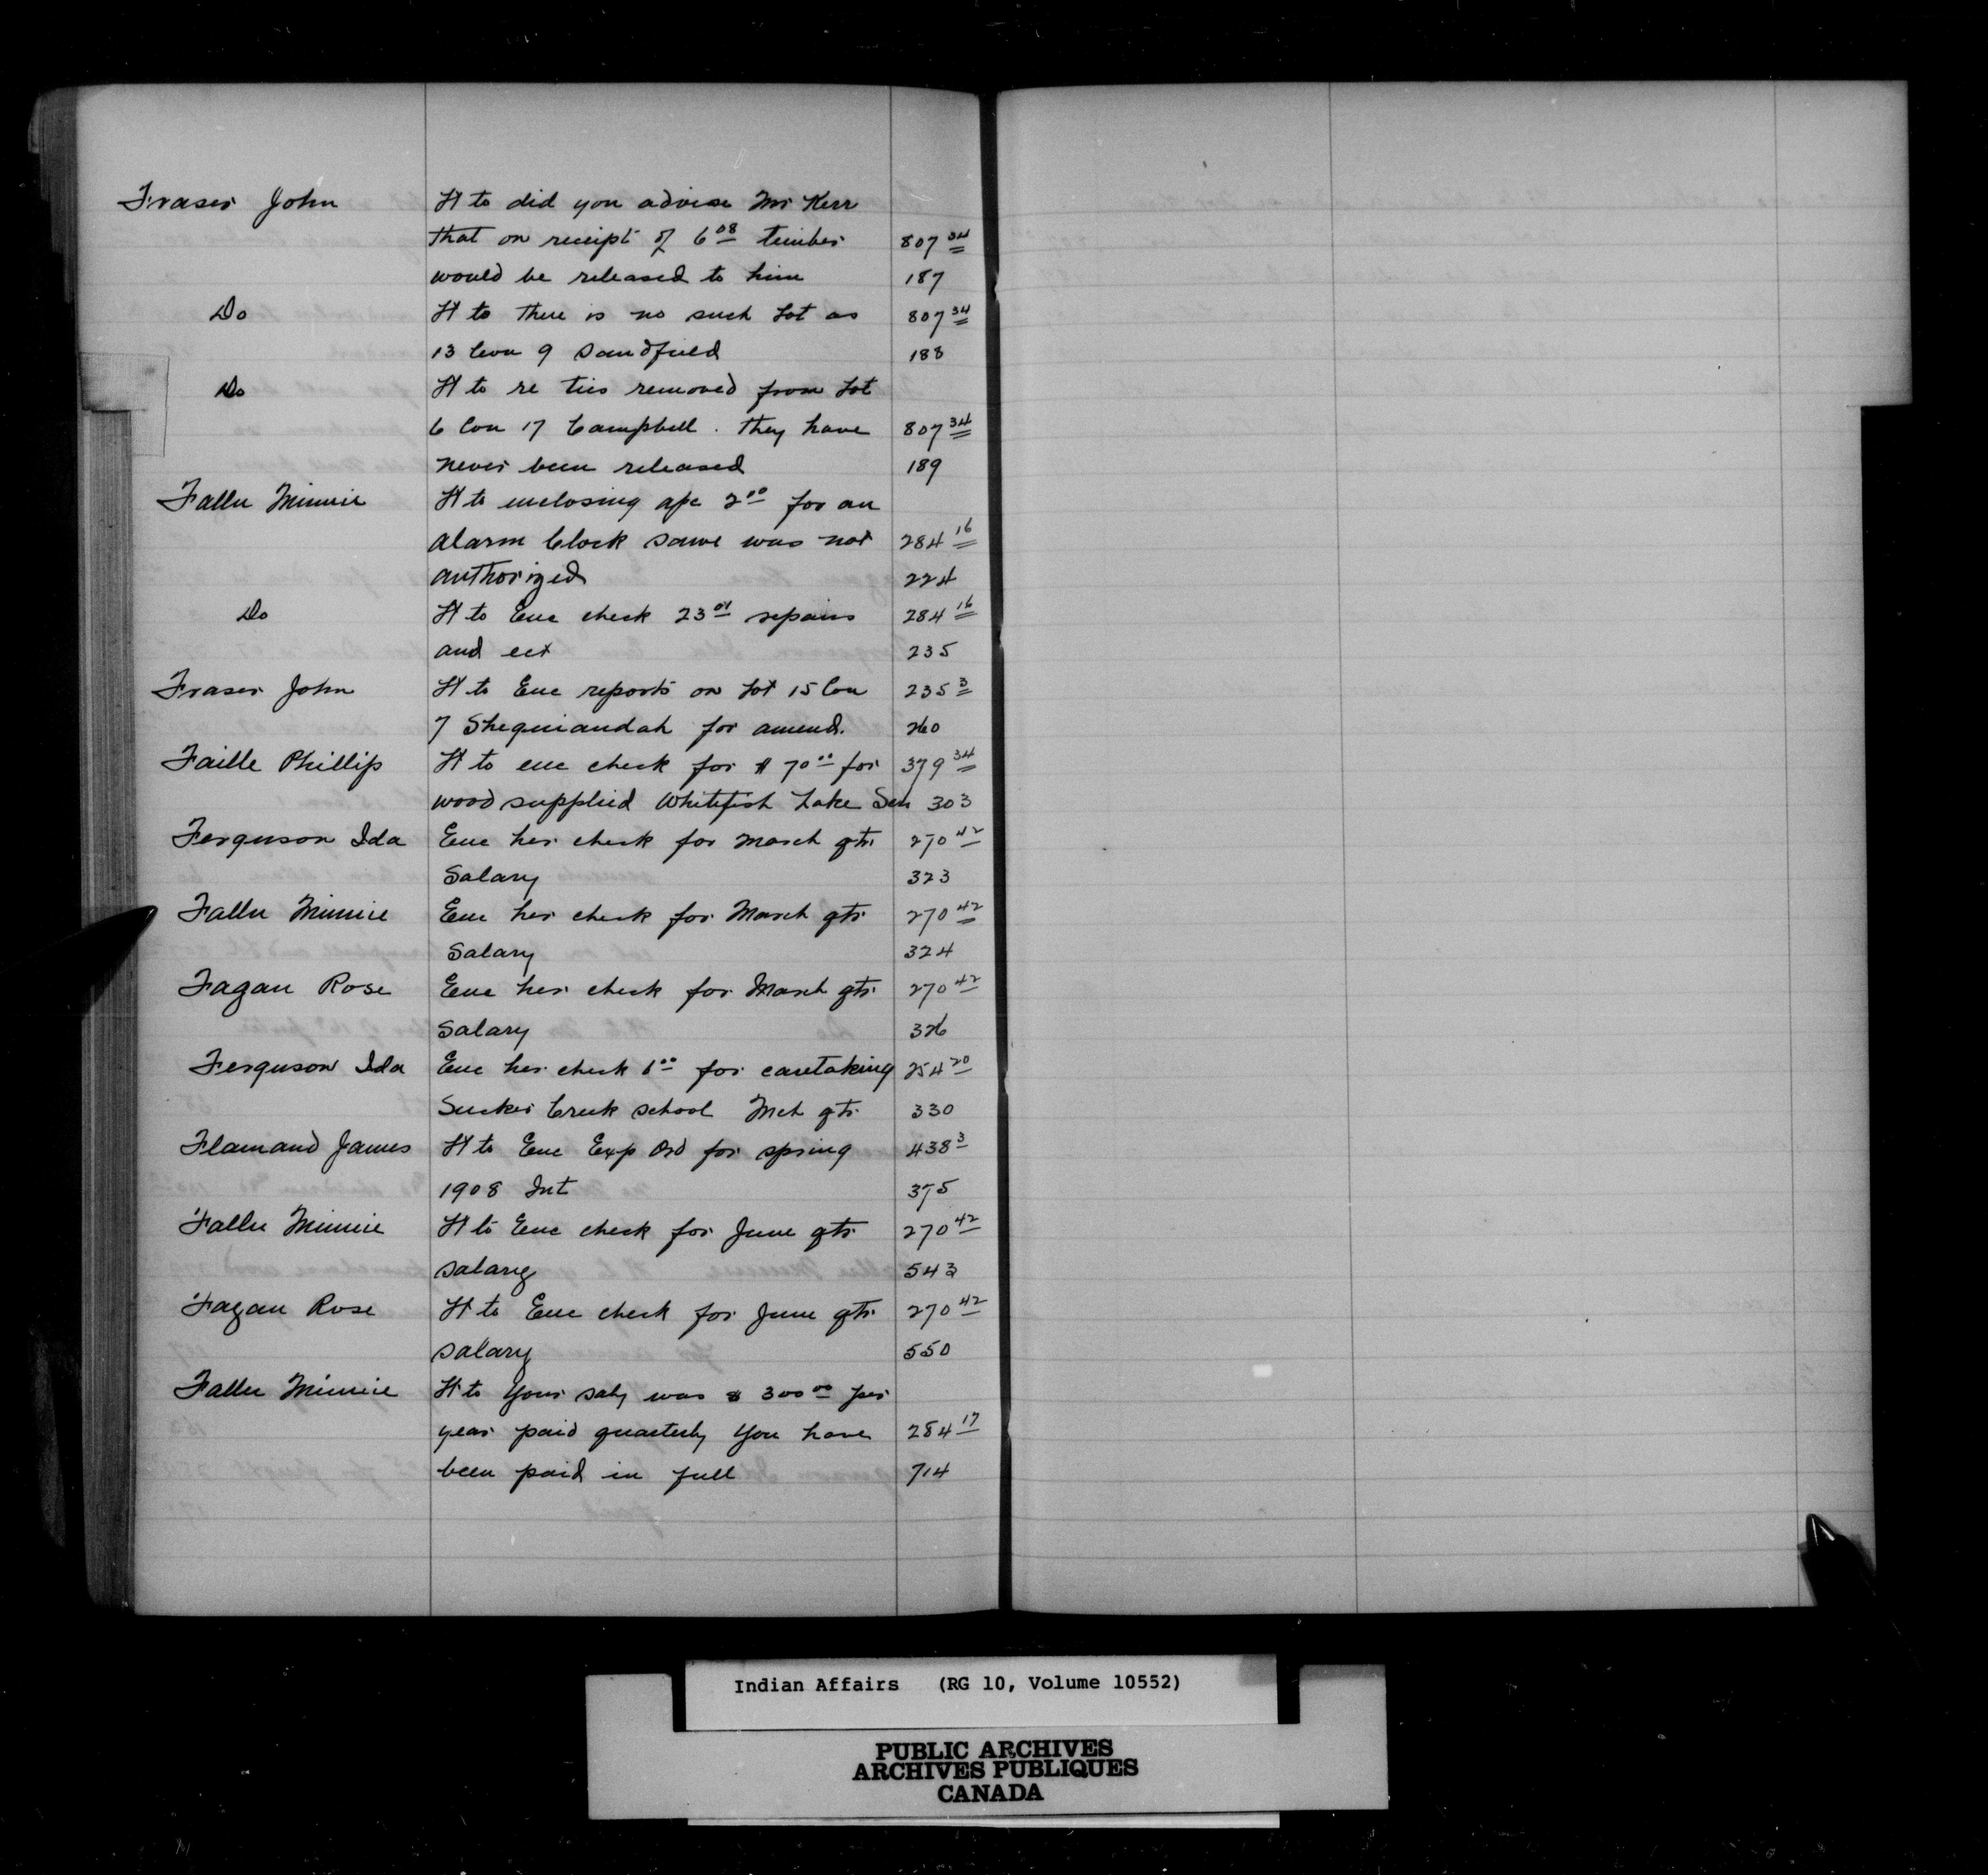 Fraser John H to did you advise Mr Kerr
that on receipt of 6 08 timber 807 34
would be released to him 187
Do H to there is no such Lot as 807 34
13 Con 9 Sandfield 188
Do H to re ties removed from Lot
6 Con 17 Campbell. they have 807 34
never been released 189
Fallu Minnie H to enclosing a/c 2 00 for an
alarm Clock same was not 284 16
authorized 224
Do H to Enc check 23 01 repairs 284 16
and ect 235
Fraser John H to Enc reports on Lot 15 Con 235 3
7 Sheguiandah for amend. 260
Faille Phillip H to enc check for $ 70 00 for 379 34
wood supplied Whitefish Lake Sch 303
Ferguson Ida Enc her check for March qtr 270 42
Salary 323
Fallu Minnie Enc her check for March qtr 270 42
Salary 324
Fagan Rose Enc her check for March qtr 270 42
Salary 326
Ferguson Ida Enc her check 6 00 for caretaking 254 20
Sucker Creek School Mch qtr 330
Flamand James H to Enc Exp Ord for spring 438 3
1908 Int 375
Fallu Minnie H to Enc check for June qtr 270 42
salary 543
Fagan Rose H to Enc check for June qtr 270 42
salary 550
Fallu Minnie H to Your saly was $ 300 00 per
year paid quarterly You have 284 17
been paid in full 714
Indian Affairs (RG 10, Volume 10552)
PUBLIC ARCHIVES
ARCHIVES PUBLIQUES
CANADA